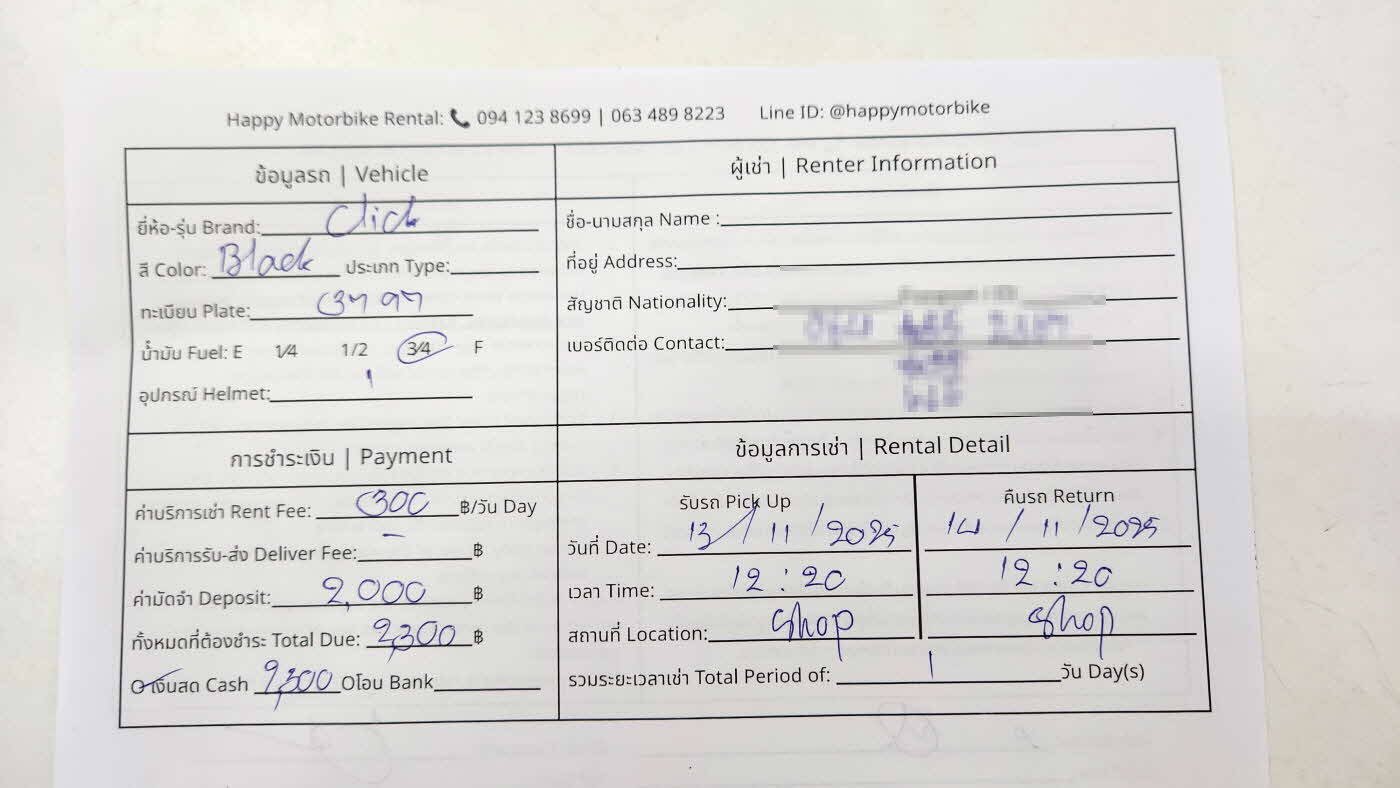 Happy Motorbike Rental: 📞 094 123 8699 | 063 489 8223 Line ID: @happymotorbike
ข้อมูลรถ | Vehicle
ยี่ห้อ-รุ่น Brand: Click
สี Color: Black ประเภท Type:
ทะเบียน Plate:
น้ำมัน Fuel: E 1/4 1/2 3/4 F
อุปกรณ์ Helmet: 1
ผู้เช่า | Renter Information
ชื่อ-นามสกุล Name :
ที่อยู่ Address:
สัญชาติ Nationality:
เบอร์ติดต่อ Contact:
การชำระเงิน | Payment
ค่าบริการเช่า Rent Fee: 300 ฿/วัน Day
ค่าบริการรับ-ส่ง Deliver Fee: - ฿
ค่ามัดจำ Deposit: 2,000 ฿
ทั้งหมดที่ต้องชำระ Total Due: 2,300 ฿
O เงินสด Cash 2,300 O โอน Bank
ข้อมูลการเช่า | Rental Detail
รับรถ Pick Up คืนรถ Return
วันที่ Date: 13 / 11 / 2025 14 / 11 / 2025
เวลา Time: 12 : 20 12 : 20
สถานที่ Location: Shop Shop
รวมระยะเวลาเช่า Total Period of: 1 วัน Day(s)